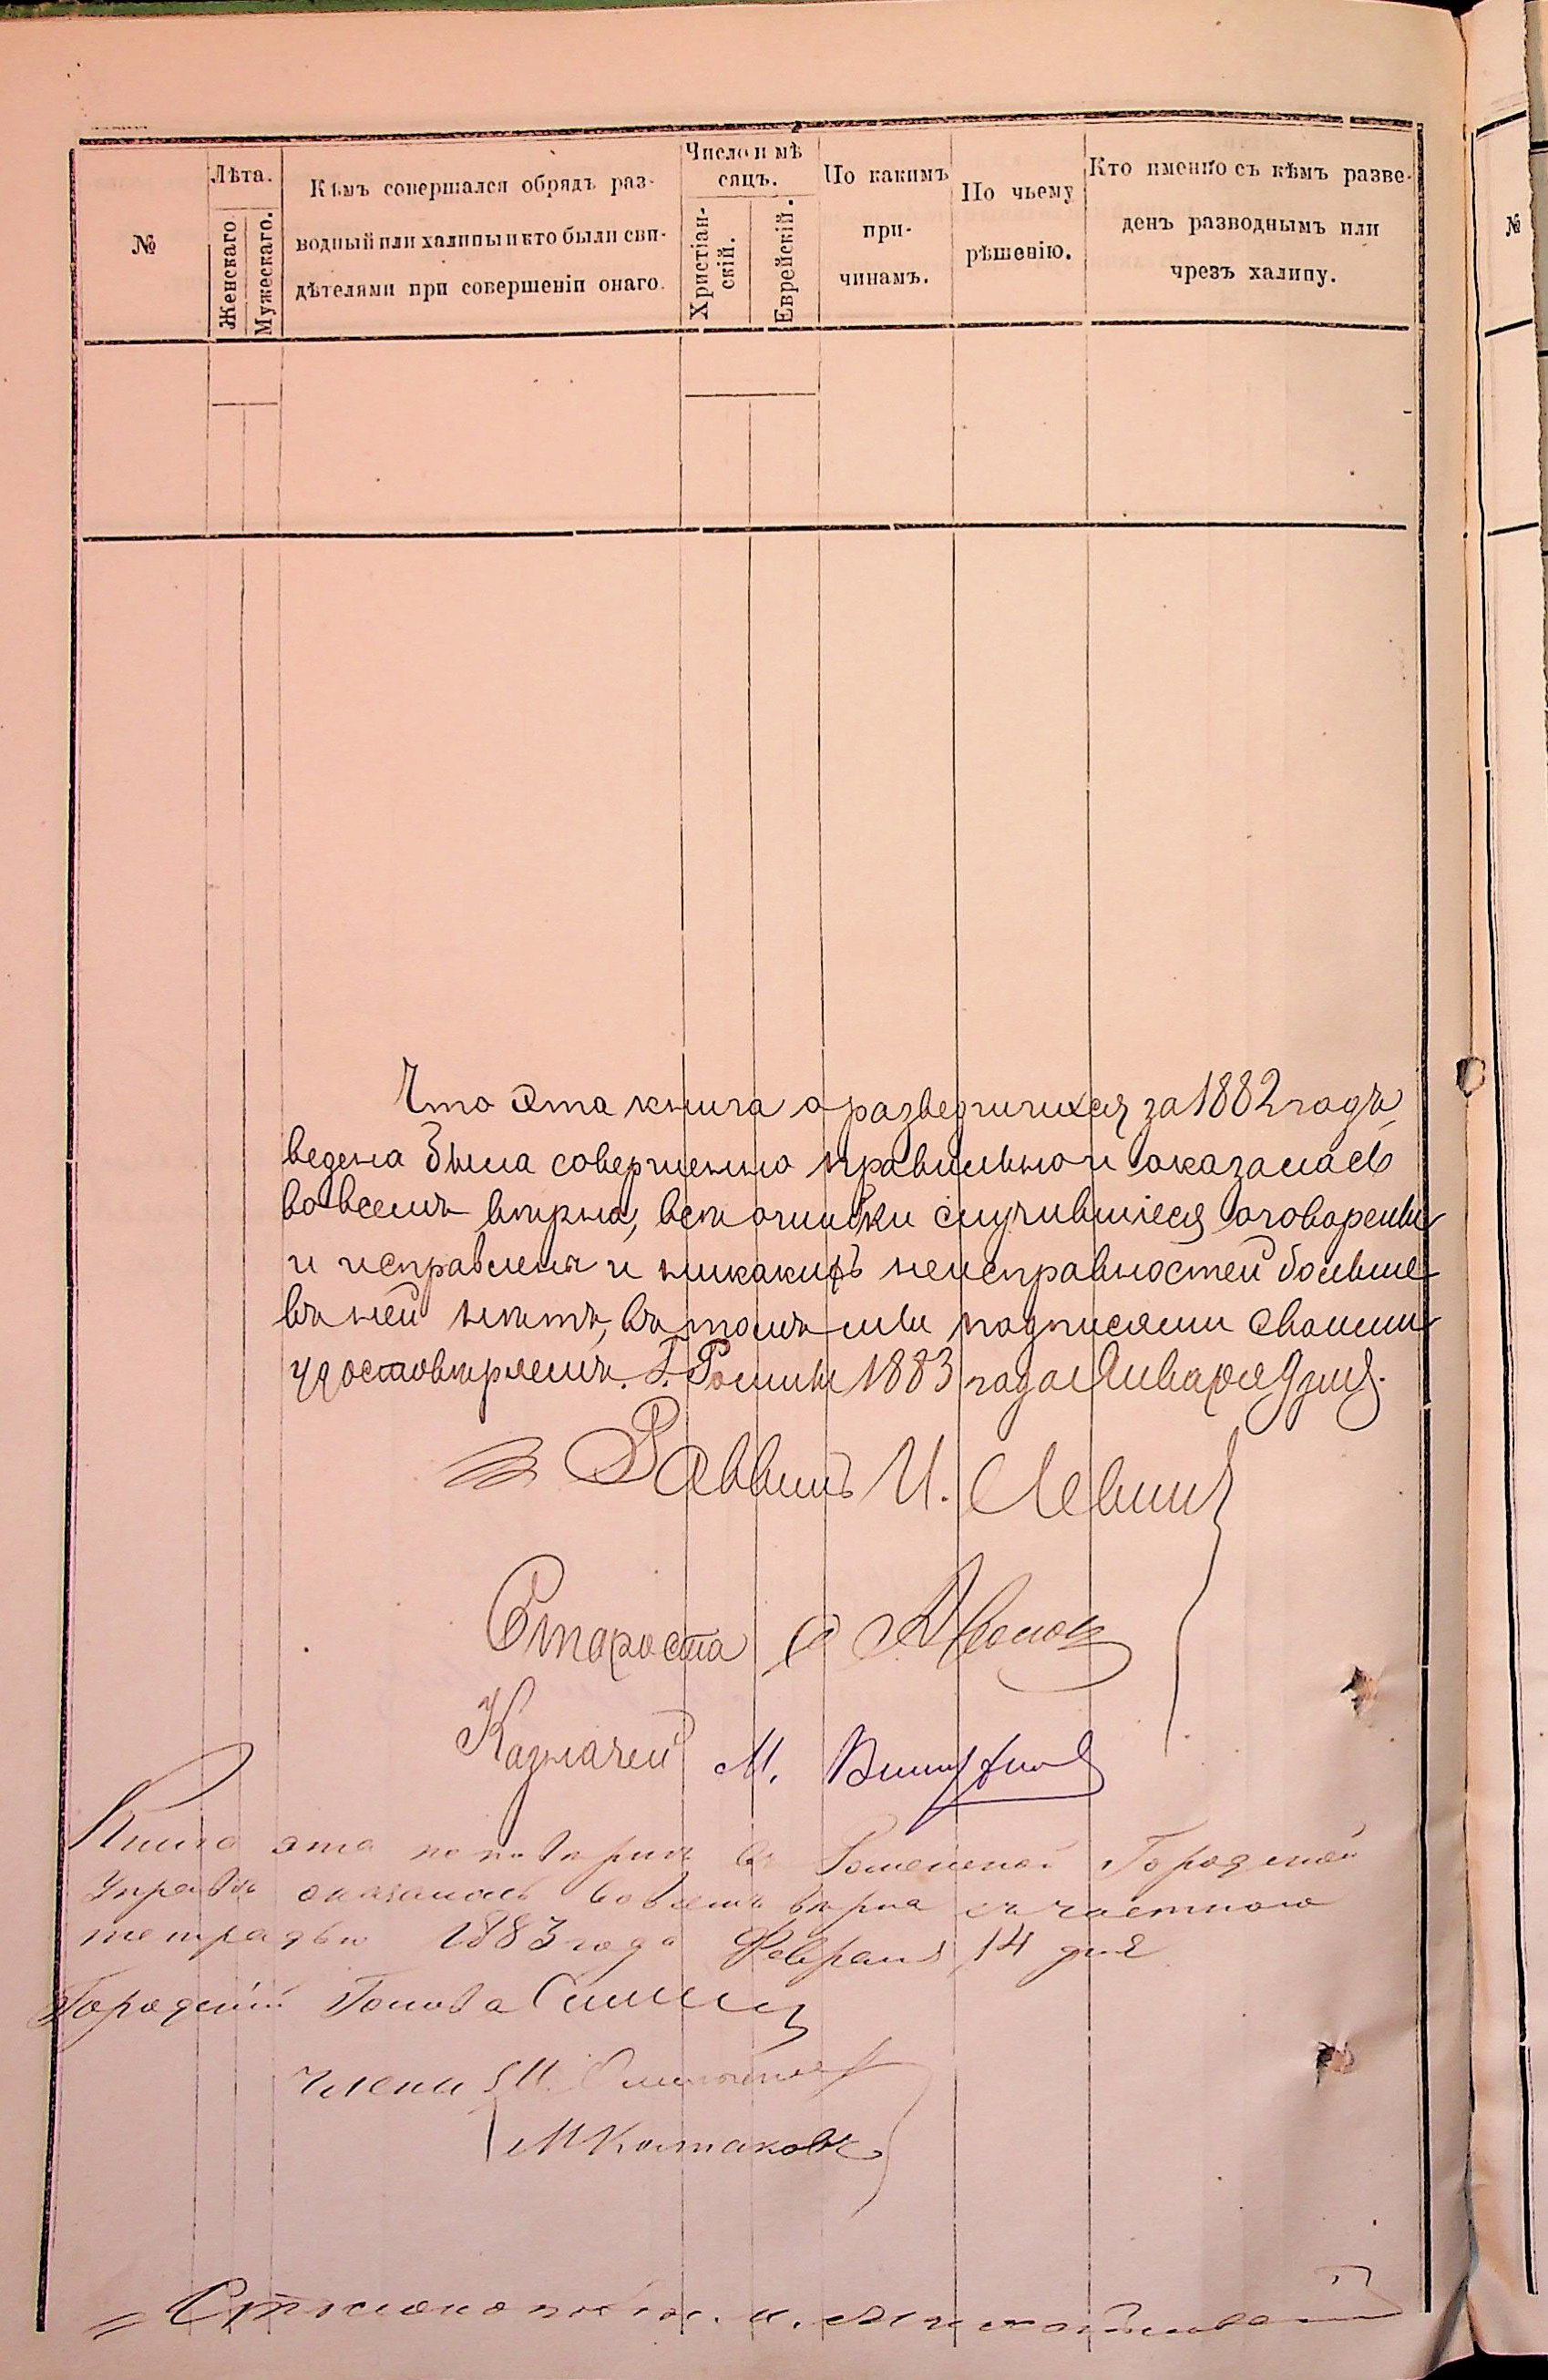 №
Лѣта.
Женскаго
Мужескаго.
Кѣмъ совершался обрядъ раз-
водный или халипы и кто были сви-
дѣтелями при совершеніи онаго.
Число и мѣ
сяцъ.
Христіан-
скій.
Еврейскій.
По какимъ
при-
чинамъ.
По чьему
рѣшенію.
Кто именно съ кѣмъ разве-
денъ разводнымъ или
чрезъ халипу.
№
Что эта книга о разведшихся за 1882 годъ
ведена была совершенно правильно и оказалась
во всемъ вѣрна, всѣ ошибки случившіеся оговорены
и исправлены и никакихъ неисправностей больше
въ ней нѣтъ, въ томъ мы подписями своими
удостовѣряемъ. Г. Ромны 1883 года Января 9 дня.
Раввинъ И. Левинъ
Староста
Казначей М.
Книга эта по повѣркѣ въ Роменской Городской
Управѣ оказалась во всемъ вѣрна съ частною
тетрадью 1883 года Февраля 14 дня
Городской Голова
Члены